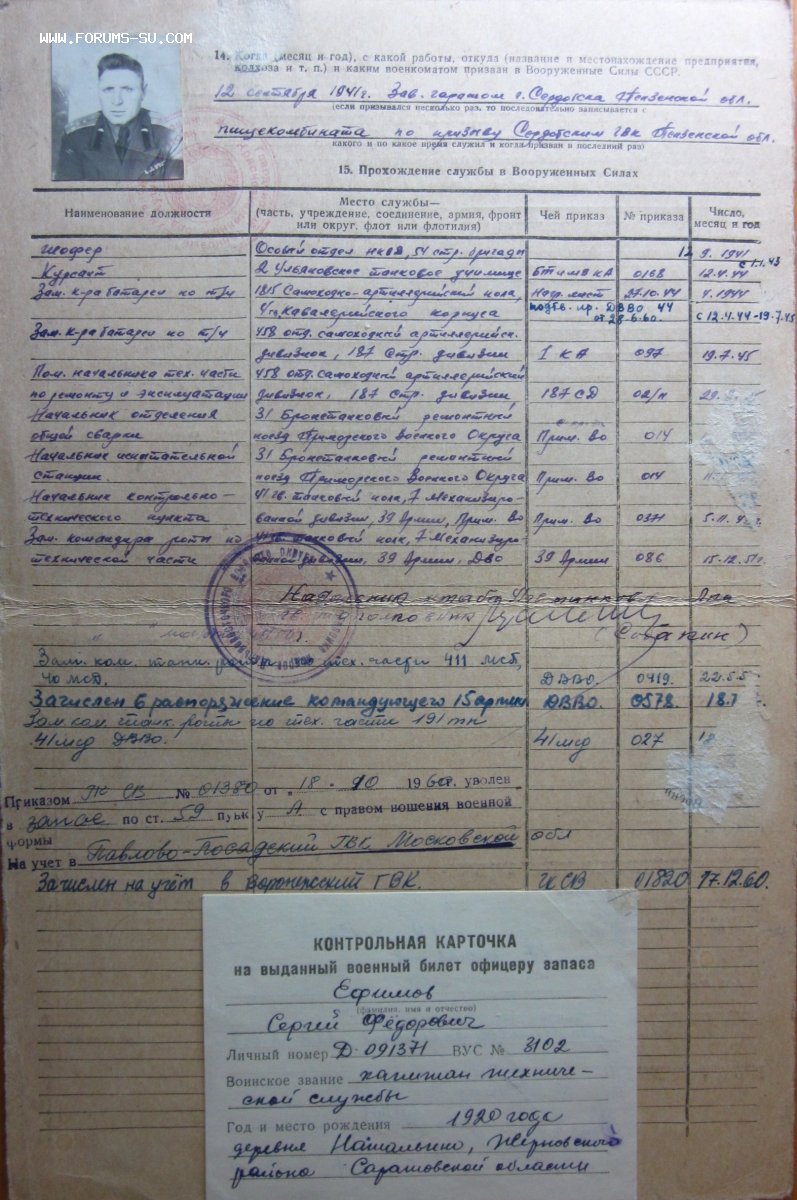 www.forums-su.com
14. Когда (месяц и год), с какой работы, откуда (название и местонахождение предприятия,
колхоза и т. п.) и каким военкоматом призван в Вооруженные Силы СССР.
12 сентября 1941 г. Зав. гаражом г. Сердобска Пензенской обл.
(если призывался несколько раз, то последовательно записывается с
пищекомбината по призыву Сердобским ГВК Пензенской обл.
какого и по какое время служил и когда призван в последний раз)
15. Прохождение службы в Вооруженных Силах
Наименование должности Место службы— (часть, учреждение, соединение, армия, фронт или округ, флот или флотилия) Чей приказ № приказа Число, месяц и год
Шофер Особый отдел НКВД, 54 стр. бригады 12 9. 1941
с 1.1.43
Курсант 2 Ульяновское танковое училище БТ и МВ КА 0168 12.4.44
Зам. к-ра батареи по т/ч 1815 Самоходно-артиллерийский полк, Нагр. лист 27.10.44 4.1944
4 гв. Кавалерийского корпуса подтв. пр. ДВВО 44 от 28-6.60. с 12.4.44-19.7.45
Зам. к-ра батареи по т/ч 458 отд. самоходный артиллерийск.
дивизион, 187 Стр. дивизии I КА 097 19.7.45
Пом. начальника тех. части 458 отд. самоходный артиллерийский
по ремонту и эксплуатации дивизион, 187 Стр. дивизии 187 СД 02/п 29.
Начальник отделения 31 Бронетанковый ремонтный
общей сварки поезд Приморского Военного Округа Прим. Во 014
Начальник испытательной 31 Бронетанковый ремонтный
станции. поезд Приморского Военного Округа Прим. Во 014 11.
Начальник контрольно- 41 гв. танковый полк, 7 Механизиро-
технического пункта ванной дивизии, 39 Армии, Прим. Во Прим. Во 0371 5.11.4
Зам. командира роты по танковый полк, 7 Механизиро-
технической части ванной дивизии, 39 Армии, ДВО 39 Армии 086 15.12.51г.
Начальник штаба
подполковник
(Сабанин)
Зам. ком. танк. роты по тех. части 411 мсп,
40 мсд. ДВВО. 0419. 22.5.5
Зачислен в распоряжение командующего 15 армии ДВВО. 0578. 18.7
Зам. ком. танк. роты по тех. части 191 тп
41 мсд ДВВО. 41 мсд 027 12
Приказом ГК СВ № 01380 от „18 - 10 1960г. уволен
в запас по ст. 59 пункту А с правом ношения военной
формы
На учет в Павлово-Посадский ГВК Московской обл
Зачислен на учёт в Воронежский ГВК. ГК СВ 01820 17.12.60.
КОНТРОЛЬНАЯ КАРТОЧКА
на выданный военный билет офицеру запаса
Ефимов
(фамилия, имя и отчество)
Сергий Фёдорович
Личный номер Д-091371 ВУС № 3102
Воинское звание капитан техниче-
ской службы
Год и место рождения 1920 года
деревня Натальино, Жерновского
района Саратовской области